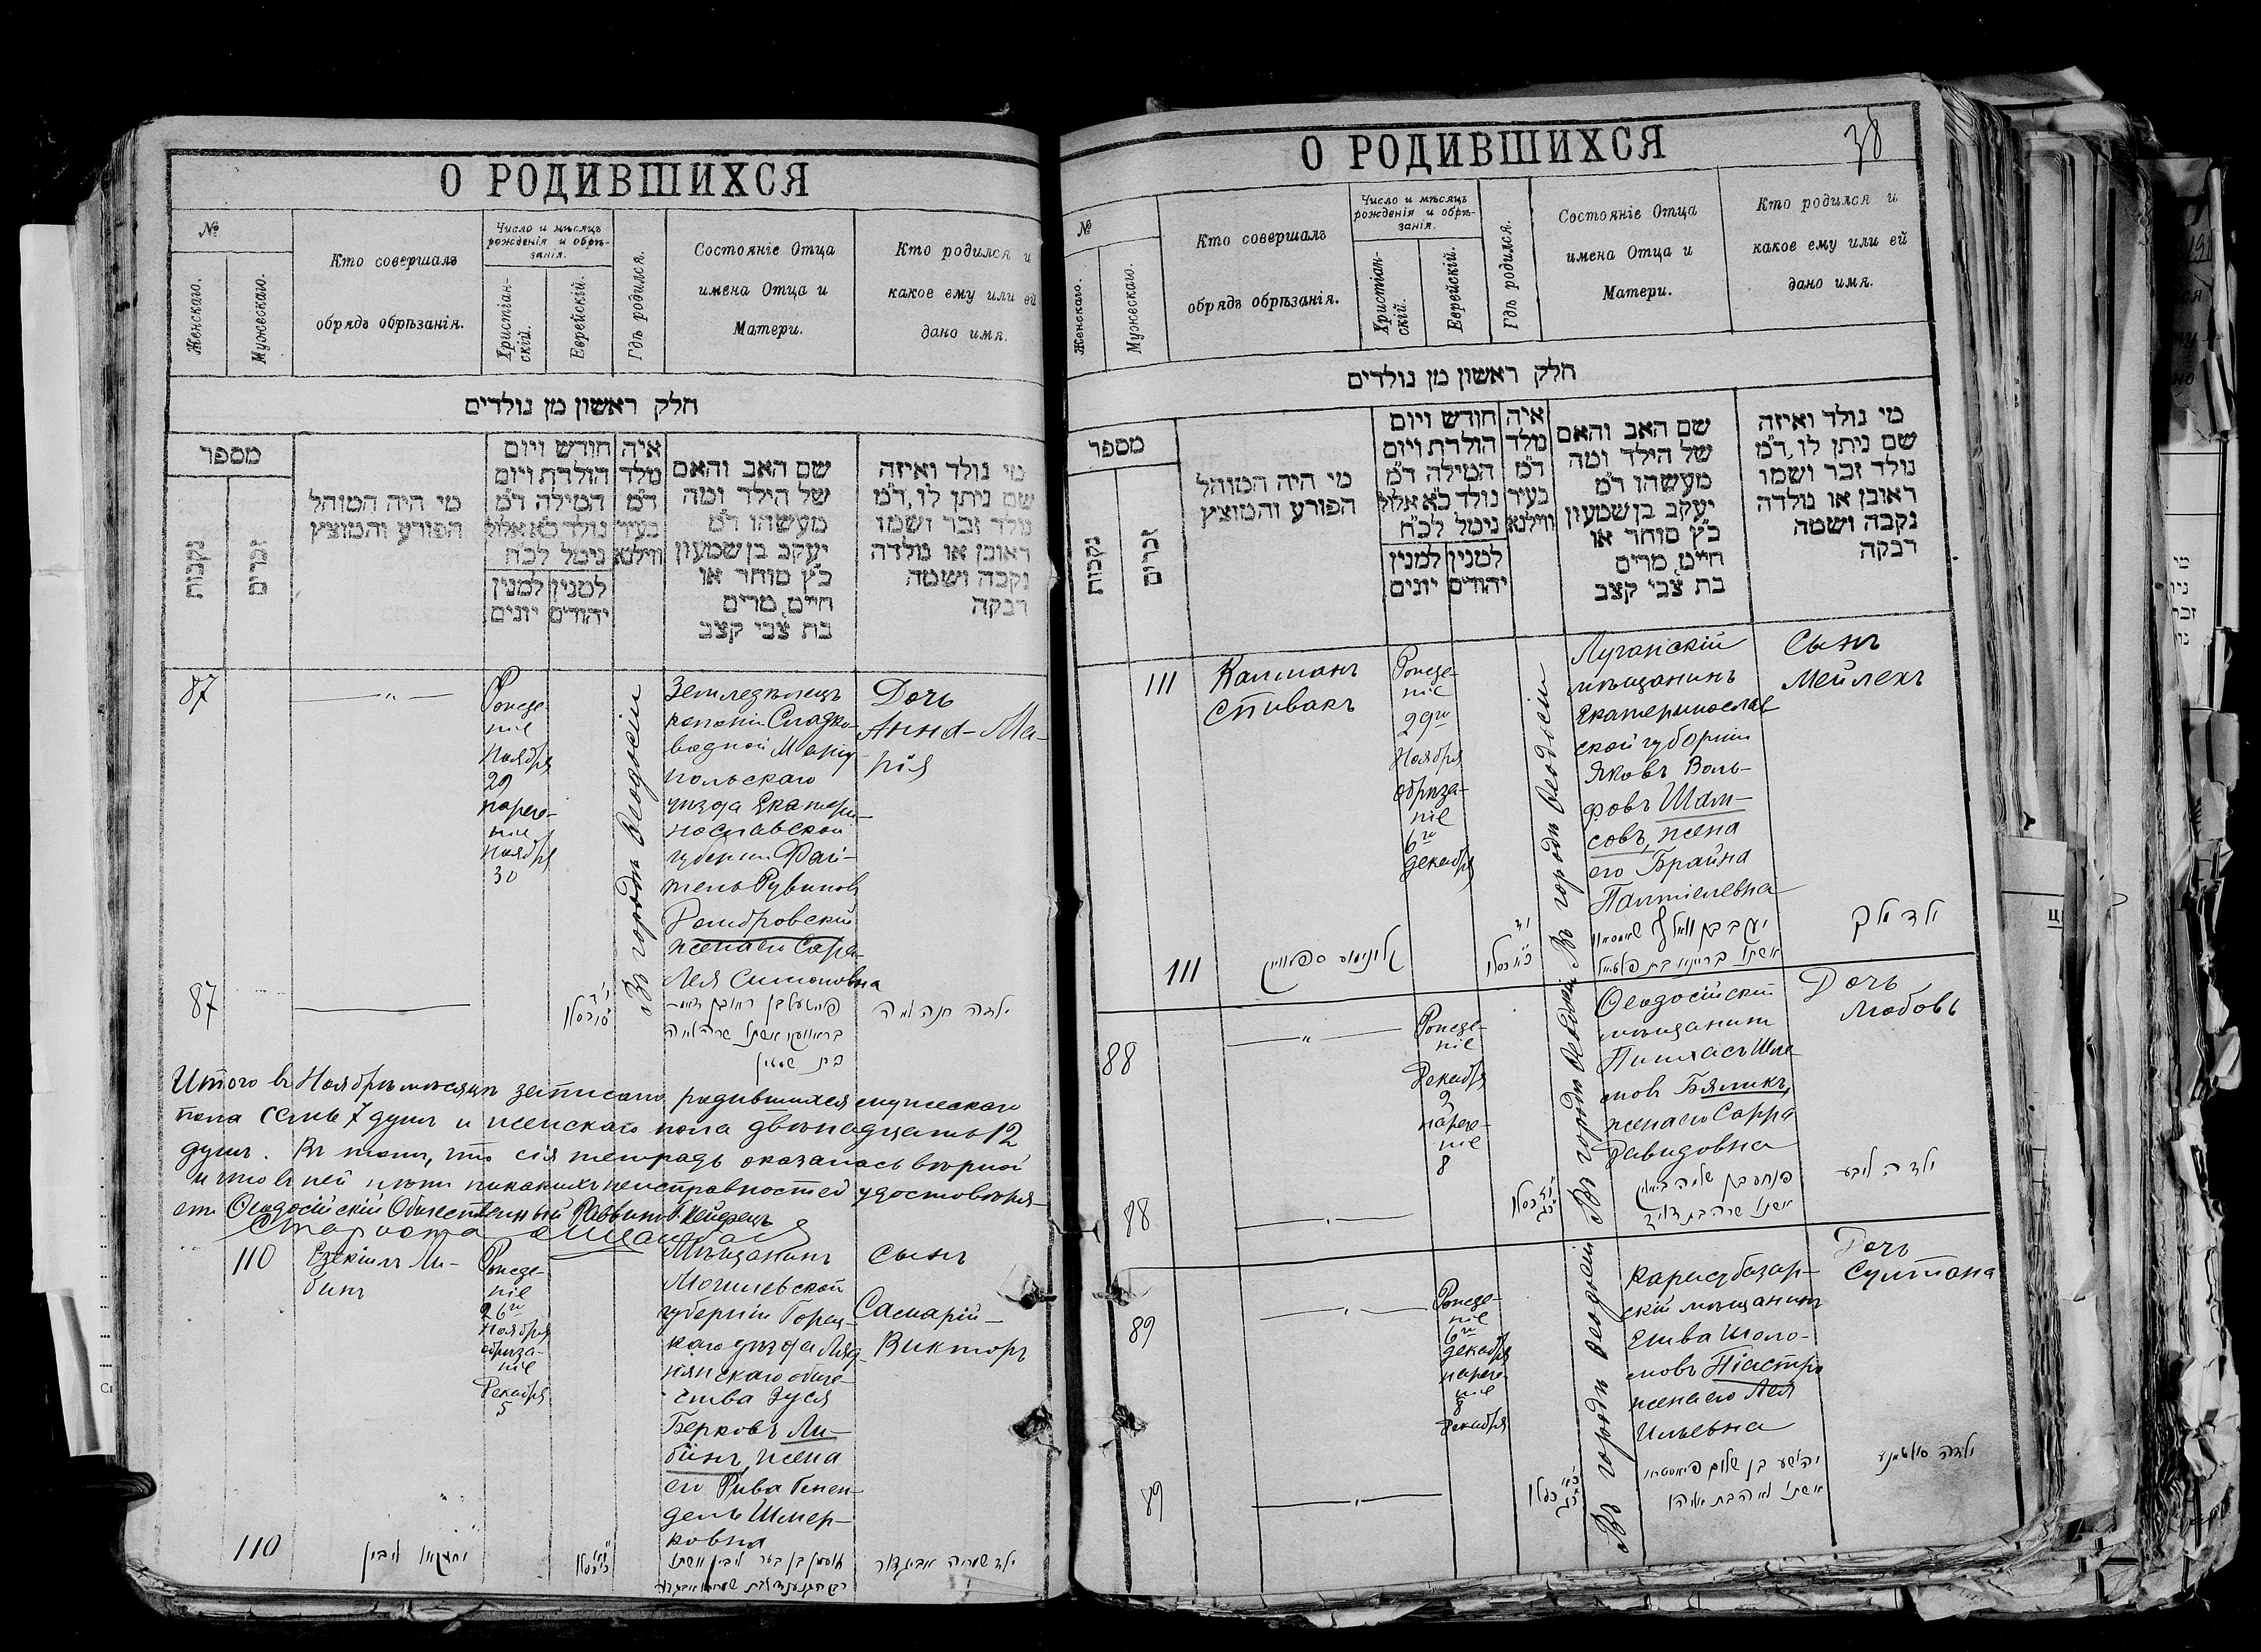 О РОДИВШИХСЯ
№
Женскаго.
Мужескаго.
Кто совершалъ
обрядъ обрѣзанія.
Число и мѣсяцъ
рожденія и обрѣ-
занія.
Христіан-
скій.
Еврейскій.
Гдѣ родился.
Состояніе Отца
имена Отца и
Матери.
Кто родился и
какое ему или ей
дано имя.
חלק ראשון מן נולדים
מספר
נקבות
זכרים
מי היה המוהל
הפורע והמוצץ
חודש ויום
הולדת ויום
המילה ד״מ
נולד כ״א אלול
נימל לכ״ח
למנין למנין
יהודים יונים
איה
מלד
ד״מ
בעיר
ווילנא
שם האב והאם
של הילד ומה
מעשהו ד״מ
יעקב בן שמעון
כ״ץ סוחר או
חיים, מרים
בת צבי קצב
מי נולד ואיזה
שם ניתן לו, ד״מ
נולד זכר ושמו
ראובן או נולדה
נקבה ושמה
רבקה
87
— „ —
Рожде-
ніе
Ноября
29
нарече-
ніе
Ноября
30
Въ городѣ Ѳеодосіи
Земледѣлецъ
колоніи Сладко-
водной Маріу-
польскаго
уѣзда Екатери-
нославской
губерніи Фай-
тель Рувиновъ
жена его Сара-
Лея Симоновна
Дочь
Анна-Ма-
рія
87
ילדה חנה
Итого въ Ноябрѣ мѣсяцѣ записано родившихся мужескаго
пола семь 7 душъ и женскаго пола двѣнадцать 12
душъ. Въ томъ, что сія тетрадь оказалась вѣрной
и что въ ней нѣтъ никакихъ неисправностей удостовѣря-
етъ Ѳеодосійскій Общественный Раввинъ
Староста
110
Езекіилъ Ли-
бинъ
Рожде-
ніе
26го
Ноября
обрѣза-
ніе
Декабря
5
Мѣщанинъ
Могилевской
губерніи Горец-
каго уѣзда Ляд-
нянскаго обще-
ства Зуся
Берковъ Ли-
бинъ, жена
его Рива Генен-
дель Шмер-
ковна
Сынъ
Самарій-
Викторъ
110
יחזקאל ליבין
О РОДИВШИХСЯ
38
№
Женскаго.
Мужескаго.
Кто совершалъ
обрядъ обрѣзанія.
Число и мѣсяцъ
рожденія и обрѣ-
занія.
Христіан-
скій.
Еврейскій.
Гдѣ родился.
Состояніе Отца
имена Отца и
Матери.
Кто родился и
какое ему или ей
дано имя.
חלק ראשון מן נולדים
מספר
נקבות
זכרים
מי היה המוהל
הפורע והמוצץ
חודש ויום
הולדת ויום
המילה ד״מ
נולד כ״א אלול
נימל לכ״ח
למנין למנין
יהודים יונים
איה
מלד
ד״מ
בעיר
ווילנא
שם האב והאם
של הילד ומה
מעשהו ד״מ
יעקב בן שמעון
כ״ץ סוחר או
חיים, מרים
בת צבי קצב
מי נולד ואיזה
שם ניתן לו, ד״מ
נולד זכר ושמו
ראובן או נולדה
נקבה ושמה
רבקה
111
Калманъ
Спивакъ
Рожде-
ніе
29го
Ноября
обрѣза-
ніе
6го
декабря
Въ городѣ Ѳеодосіи
Луганскій
мѣщанинъ
Екатеринослав
ской губерніи
Яковъ Воль-
фовъ Шам-
совъ, жена
его Брайна
Палтіелевна
Сынъ
Мейлехъ
111
ילד מלך
88
— „ —
Рожде-
ніе
Декабря
2
нарече-
ніе
8
Въ городѣ Ѳеодосіи
Ѳеодосійскій
мѣщанинъ
Пинхасъ Шле-
мовъ Бяликъ,
жена его Сарра
Давидовна
Дочь
Любовь
88
אשתו שרה בת דוד
ילדה ליבע
89
— „ —
Рожде-
ніе
6го
декабря
нарече-
ніе
8
Декабря
Въ городѣ Ѳеодосіи
Карасубазар-
скій мѣщанинъ
Ешва Шоло-
мовъ Піастро
жена его Лея
Ильевна
Дочь
Султана
89
יהושע בן שלום פיאסטרו
אשתו לאה בת אליהו
ילדה סולטנע